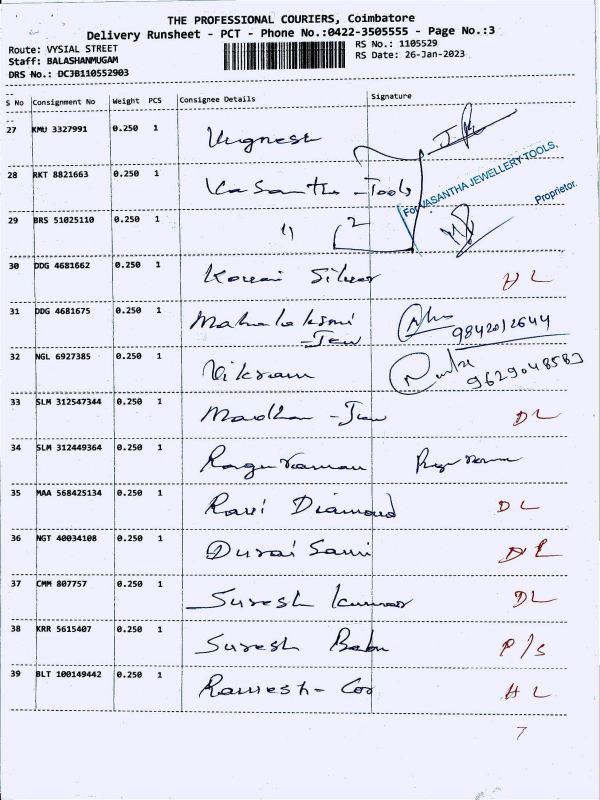 THE PROFESSIONAL COURIERS, Coimbatore
Delivery Runsheet - PCT - Phone No.:0422-3505555 - Page No.:3
Route: VYSIAL STREET RS No.: 1105529
Staff: BALASHANMUGAM RS Date: 26-Jan-2023
DRS No.: DCJB110552903
S No Consignment No Weight PCS Consignee Details Signature
27 KMU 3327991 0.250 1 Vignesh
28 RKT 8821663 0.250 1 Vasantha - Tools
For VASANTHA JEWELLERY TOOLS,
Proprietor.
29 BRS 51025110 0.250 1 11 2
30 DDG 4681662 0.250 1 Kovai Silver H L
31 DDG 4681675 0.250 1 Mahalaksmi - Jew 9842012644
32 NGL 6927385 0.250 1 Vikram 9629048583
33 SLM 312547344 0.250 1 Madhan - Jew D L
34 SLM 312449364 0.250 1 Raguraman
35 MAA 568425134 0.250 1 Ravi Diamond D L
36 NGT 40034108 0.250 1 Durai Sami D L
37 CMM 807757 0.250 1 Suresh kumar D L
38 KRR 5615407 0.250 1 Suresh Babu P/S
39 BLT 100149442 0.250 1 Ramesh - Cor H L
7